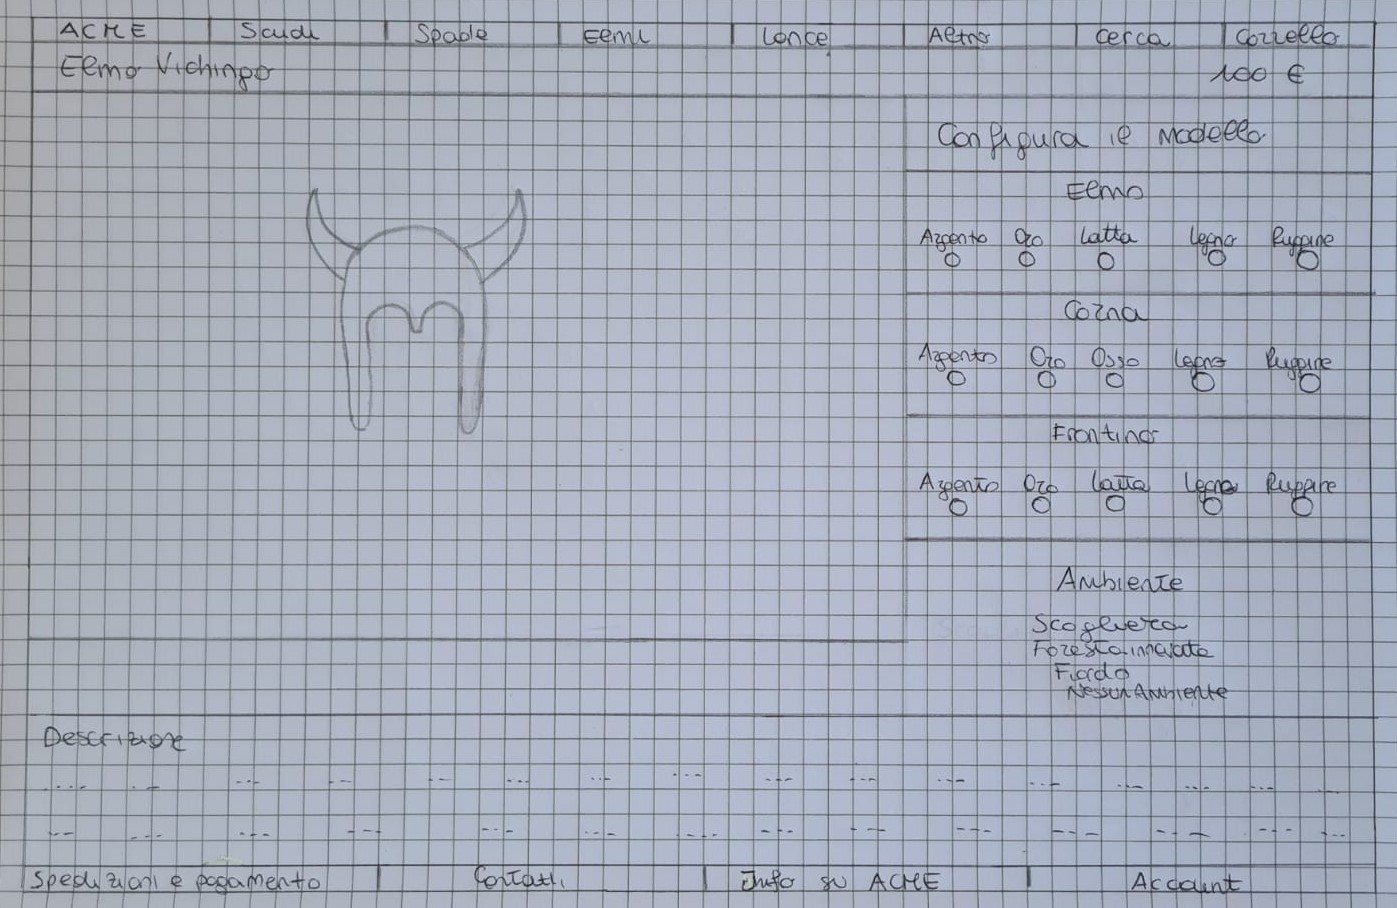 ACME Scudi Spade Elmi Lance Altro Cerca Carrello
Elmo Vichingo 100 €
Configura il modello
Elmo
Argento Oro Latta Legno Ruggine
Corna
Argento Oro Osso Legno Ruggine
Frontino
Argento Oro Latta Legno Ruggine
Ambiente
Scogliera
Foresta innevata
Fiordo
Nessun Ambiente
Descrizione
Spedizioni e pagamento Contatti Info su ACME Account